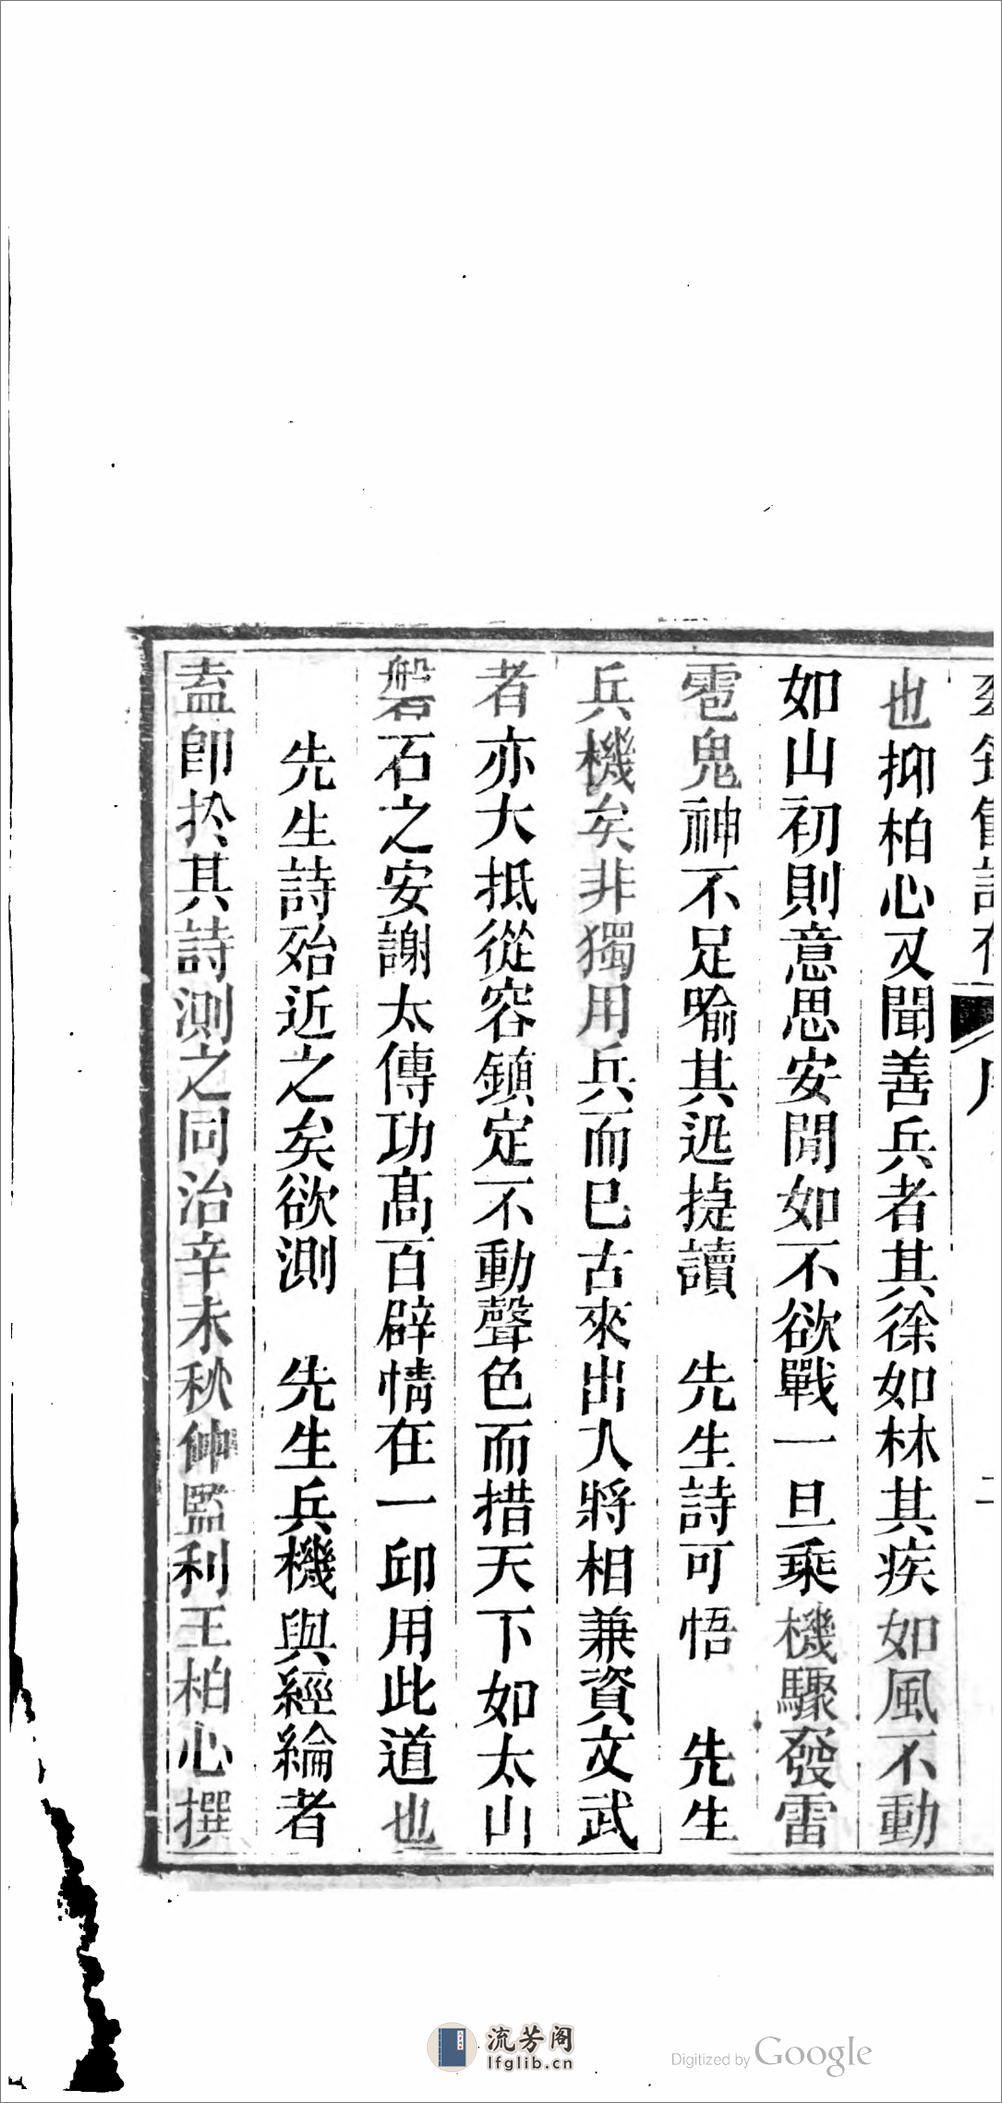 序
二
也抑柏心又聞善兵者其徐如林其疾如風不動
如山初則意思安閒如不欲戰一旦乘機驟發雷
雹鬼神不足喻其迅㨗讀　先生詩可悟　先生
兵機矣非獨用兵而已古來出入將相兼資文武
者亦大抵從容鎮定不動聲色而措天下如太山
磐石之安謝太傅功髙百辟情在一邱用此道也
先生詩殆近之矣欲測　先生兵機與經綸者
盍卽於其詩測之同治辛未秋仲監利王柏心撰
流芳阁
lfglib.cn
Digitized by Google